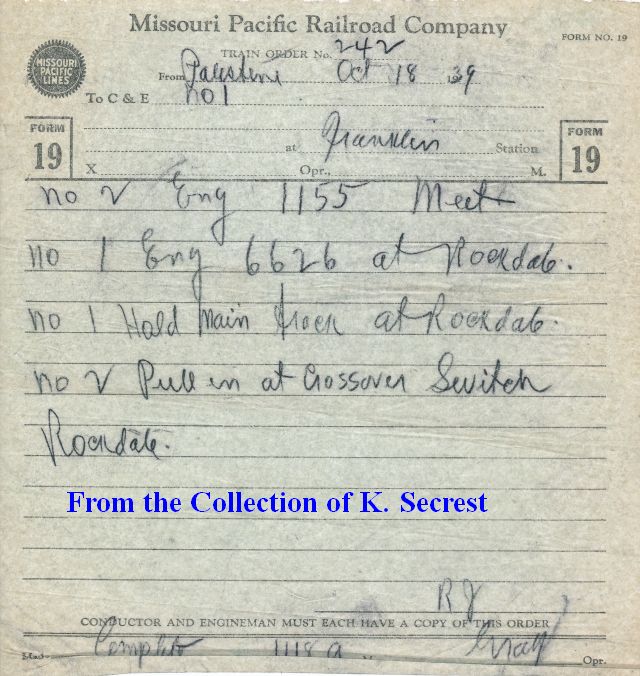 Missouri Pacific Railroad Company
FORM NO. 19
MISSOURI PACIFIC LINES
TRAIN ORDER No. 242
From Palestine Oct 18 39
To C & E no 1
at Franklin Station
X Opr., M.
FORM 19
FORM 19
no 2 Eng 1155 Meet
no 1 Eng 6626 at Rockdale.
no 1 Hold Main track at Rockdale.
no 2 Pull in at Crossover Switch
Rockdale.
From the Collection of K. Secrest
CONDUCTOR AND ENGINEMAN MUST EACH HAVE A COPY OF THIS ORDER
Complete 1118 a Opr.